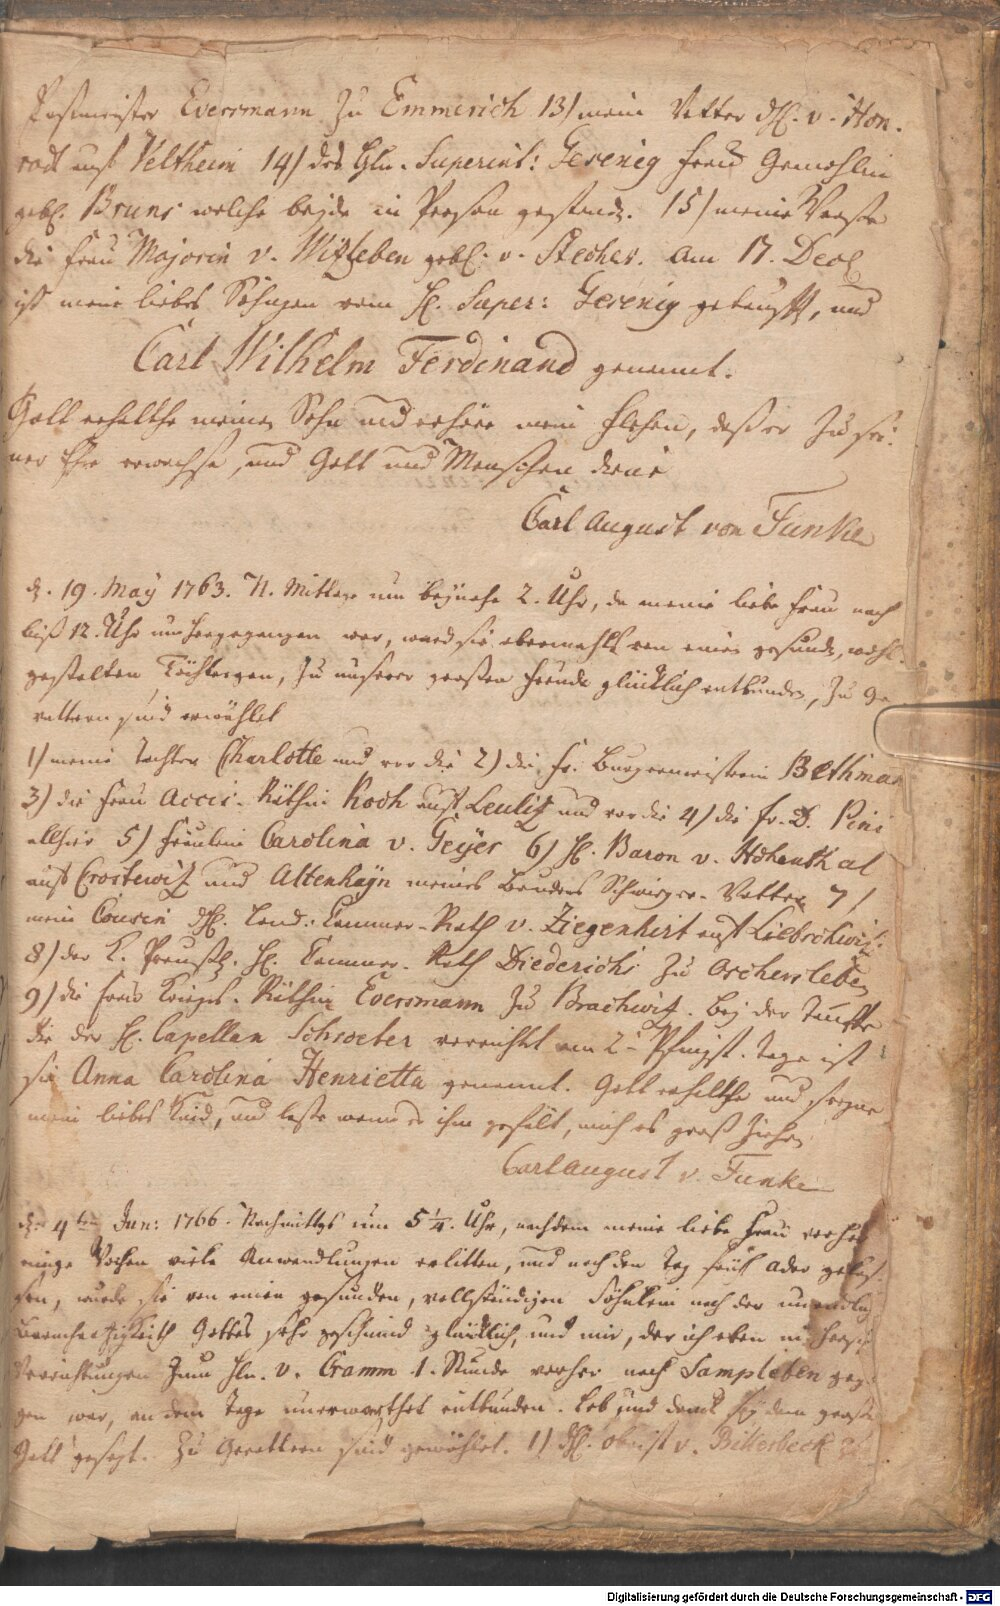 Postmeister Eversmann zu Emmerich 13) mein Vetter H. v. Hon-
rodt auf Veltheim 14) des Hln. Superint: Gesenig Frau Gemahlin
gebl. Bruns welche beyde in Person gestanden. 15) meine
die Frau Majorin v. Witzleben gebl. v. Stecher. Am 17. Decbl
ist mein liebes Söhngen vom H. Super: Gesenig getaufft, und
Carl Wilhelm Ferdinand genennt.
Gott erhalthe meinen Sohn und erhöre mein Flehen, daß er zu sei-
ner Ehre erwachse, und Gott und Menschen diene
Carl August von Funke
d. 19. May 1763. N. Mittags um beynahe 2. Uhr, da meine liebe Frau noch
biß 12. Uhr umhergegangen war, ward sie abermahls von einen gesunden, wohl-
gestalten Töchtergen, zu unserer grosten Freude glücklich entbunden, zu Ge-
vattern sind erwählet
1) meine Tochter Charlotte und vor die 2) die Fr. Burgermeisterin Bethman
3) die Frau Accis-Räthin Koch auf Leulitz und vor die 4) die Fr. D. Pini
allhier 5) Fräulein Carolina v. Geyer 6) H. Baron v. Hohenthal
auf Crostewitz und Altenhayn meines Bruders Schwieger-Vatter 7)
mein Cousin H. Land-Cammer-Rath v. Ziegenhirt auf Liebschwitz
8) der K. Preußl. H. Cammer-Rath Diederichs zu Aschersleben
9) die Frau Kriegs-Räthin Eversmann zu Brachwitz. Bey der Tauffe
die der H. Capellan Schroeter verrichtet am 2ten Pfingst-Tage ist
sie Anna Carolina Henrietta genennt. Gott erhalthe und seegne
mein liebes Kind, und lasse wenn es ihm gefält, mich es groß ziehen
Carl August v. Funke
d. 4ten Jun: 1766. Nachmittgs um 5 1/4. Uhr, nachdem meine liebe Frau vorher
einige Wochen viele Anwandlungen erlitten, und noch den Tag früh Ader gelas-
sen, wurde sie von einen gesunden, vollständigen Söhnlein nach der unendlich
Barmherzigkeith Gottes sehr geschwind glücklich, und mir, der ich eben in
Verrichtungen zum Hln. v. Cramm 1. Stunde vorher nach Sampleben gegan-
gen war, an dem Tage unerwarthet entbunden. Lob und Danck sey dem grosen
Gott gesagt. Zu Gevattern sind gewählet. 1) H. Obrist v. Bikerbeck
Digitalisierung gefördert durch die Deutsche Forschungsgemeinschaft - DFG